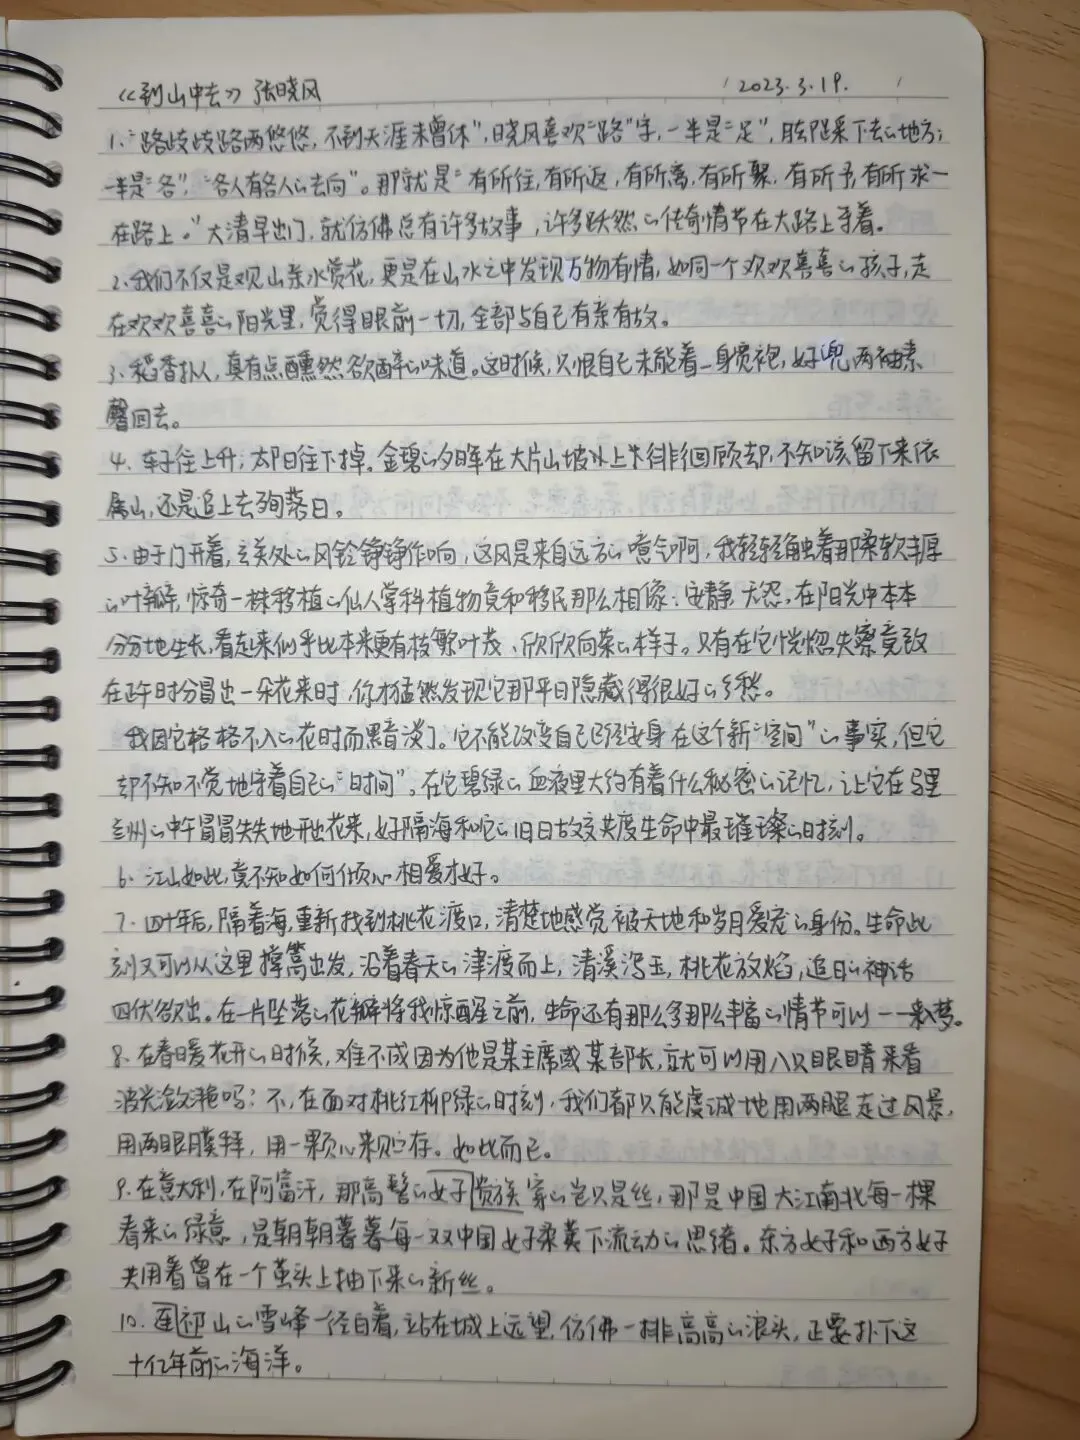 《到山中去》张晓风 2023.3.19.
1."路歧歧路两悠悠,不到天涯未曾休",晓风喜欢"路"字,一半是"足",脚踩下去的地方;
一半是"各","各人有各人的去向"。那就是"有所往,有所返,有所离,有所聚,有所予,有所求—
在路上。"大清早出门,就仿佛总有许多故事,许多跃然的传奇情节在大路上等着。
2.我们不仅是观山亲水赏花,更是在山水之中发现万物有情,如同一个欢欢喜喜的孩子,走
在欢欢喜喜的阳光里,觉得眼前一切,全部与自己有亲有故。
3.稻香扑人,真有点醺然欲醉的味道。这时候,只恨自己未能着一身宽袍,好兜两袖素
馨回去。
4.车子往上升,太阳往下掉。金碧的夕晖在大片山坡上徘徊顾却,不知该留下来依
属山,还是追上去殉落日。
5.由于门开着,玄关处的风铃铮铮作响,这风是来自远方的嗳气啊,我轻轻触着那柔软丰厚
的叶瓣,惊奇一株移植的仙人掌科植物竟和移民那么相像:安静,无怨,在阳光中本本
分分地生长,看起来似乎比本来更有枝繁叶茂、欣欣向荣的样子。只有在它恍惚失察竟致
在正午时分冒出一朵花来时,你才猛然发现它那平日隐藏得很好的乡愁。
我因它格格不入的花时而黯淡了。它不能改变自己已经安身在这个新"空间"的事实,但它
却不知不觉地守着自己的"时间",在它碧绿的血液里大约有着什么秘密的记忆,让它在马里
兰州的中午冒冒失失地开出花来,好隔海和它的旧日故交共度生命中最璀璨的时刻。
6.江山如此,竟不知如何倾心相爱才好。
7.四十年后,隔着海,重新找到桃花渡口,清楚地感觉被天地和岁月爱宠的身份。生命此
刻又可以从这里撑篙出发,沿着春天的津渡而上,清溪泻玉,桃花放焰,追日的神话
四伏欲出。在一片坠落的花瓣将我惊醒之前,生命还有那么多那么丰富的情节可以一一来梦。
8.在春日暖花开的时候,难不成因为他是某主席或某部长,就可以用八只眼睛来看
波光潋滟吗?不,在面对桃红柳绿的时刻,我们都只能虔诚地用两腿走过风景,
用两眼膜拜,用一颗心来贮存。如此而已。
9.在意大利,在阿富汗,那高髻的女子贵族家的岂只是丝,那是中国大江南北每一棵
看来的绿意,是朝朝暮暮每一双中国女子柔荑下流动的思绪。东方女子和西方女子
共用着曾在一个茧头上抽下来的新丝。
10.连祁山的雪峰一径白着,站在城上远望,仿佛一排高高的浪头,正要扑下这
十亿年前的海洋。